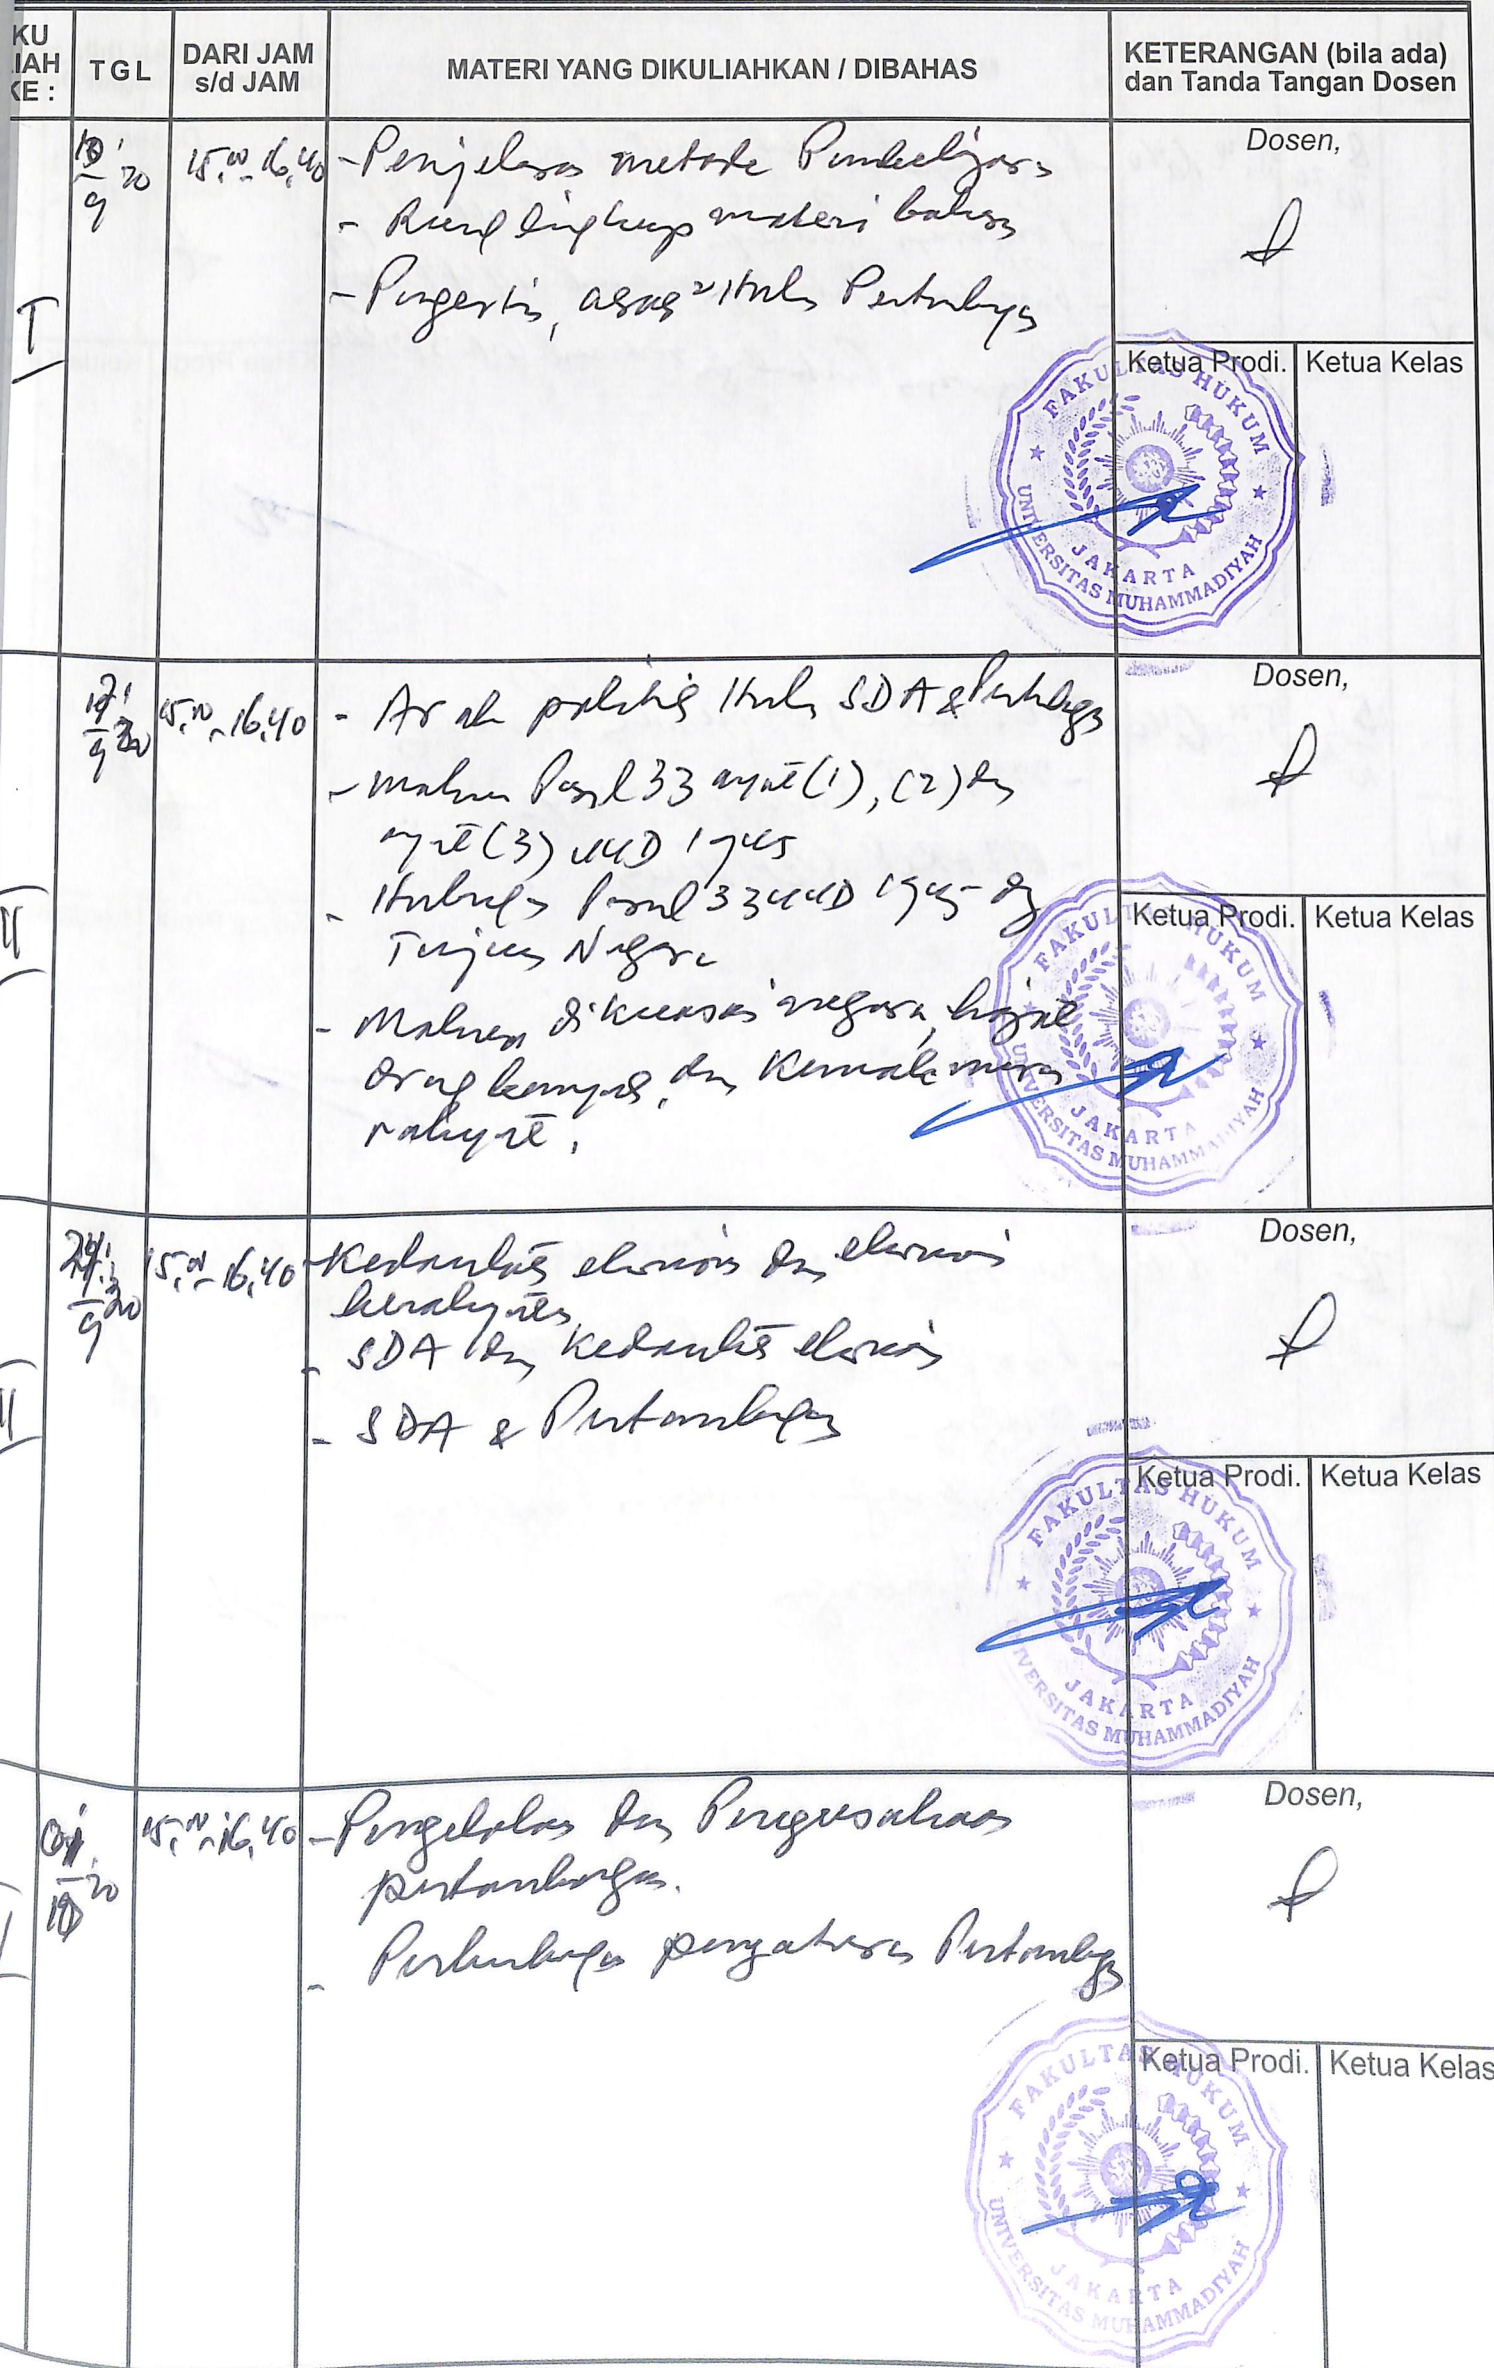 KU
IAH
KE :
TGL
DARI JAM
s/d JAM
MATERI YANG DIKULIAHKAN / DIBAHAS
KETERANGAN (bila ada)
dan Tanda Tangan Dosen
I
9 20
15.00 - 16.40
- Penjelasan metode Pembelajaran
- Ruang lingkup materi bahasan
- Pengertian, asas² Hukum Pertambangan
Dosen,
Ketua Prodi.
Ketua Kelas
FAKULTAS HUKUM
UNIVERSITAS MUHAMMADIYAH
JAKARTA
II
9 20
15.00 - 16.40
- Arah politik Hukum SDA & Pertambangan
- Makna Pasal 33 ayat (1), (2) dan
ayat (3) UUD 1945
- Hubungan Pasal 33 UUD 1945 dg
Tujuan Negara
- Makna dikuasai negara, hajat
orang banyak, dan kemakmuran
rakyat.
Dosen,
Ketua Prodi.
Ketua Kelas
FAKULTAS HUKUM
UNIVERSITAS MUHAMMADIYAH
JAKARTA
24
9 20
15.00 - 16.40
- Kedaulatan ekonomi dan ekonomi
kerakyatan
- SDA dan Kedaulatan ekonomi
- SDA & Pertambangan
Dosen,
Ketua Prodi.
Ketua Kelas
FAKULTAS HUKUM
UNIVERSITAS MUHAMMADIYAH
JAKARTA
01
10 20
15.00 - 16.40
- Pengelolaan dan Pengusahaan
pertambangan.
- Perkembangan pengaturan Pertambangan
Dosen,
Ketua Prodi.
Ketua Kelas
FAKULTAS HUKUM
UNIVERSITAS MUHAMMADIYAH
JAKARTA